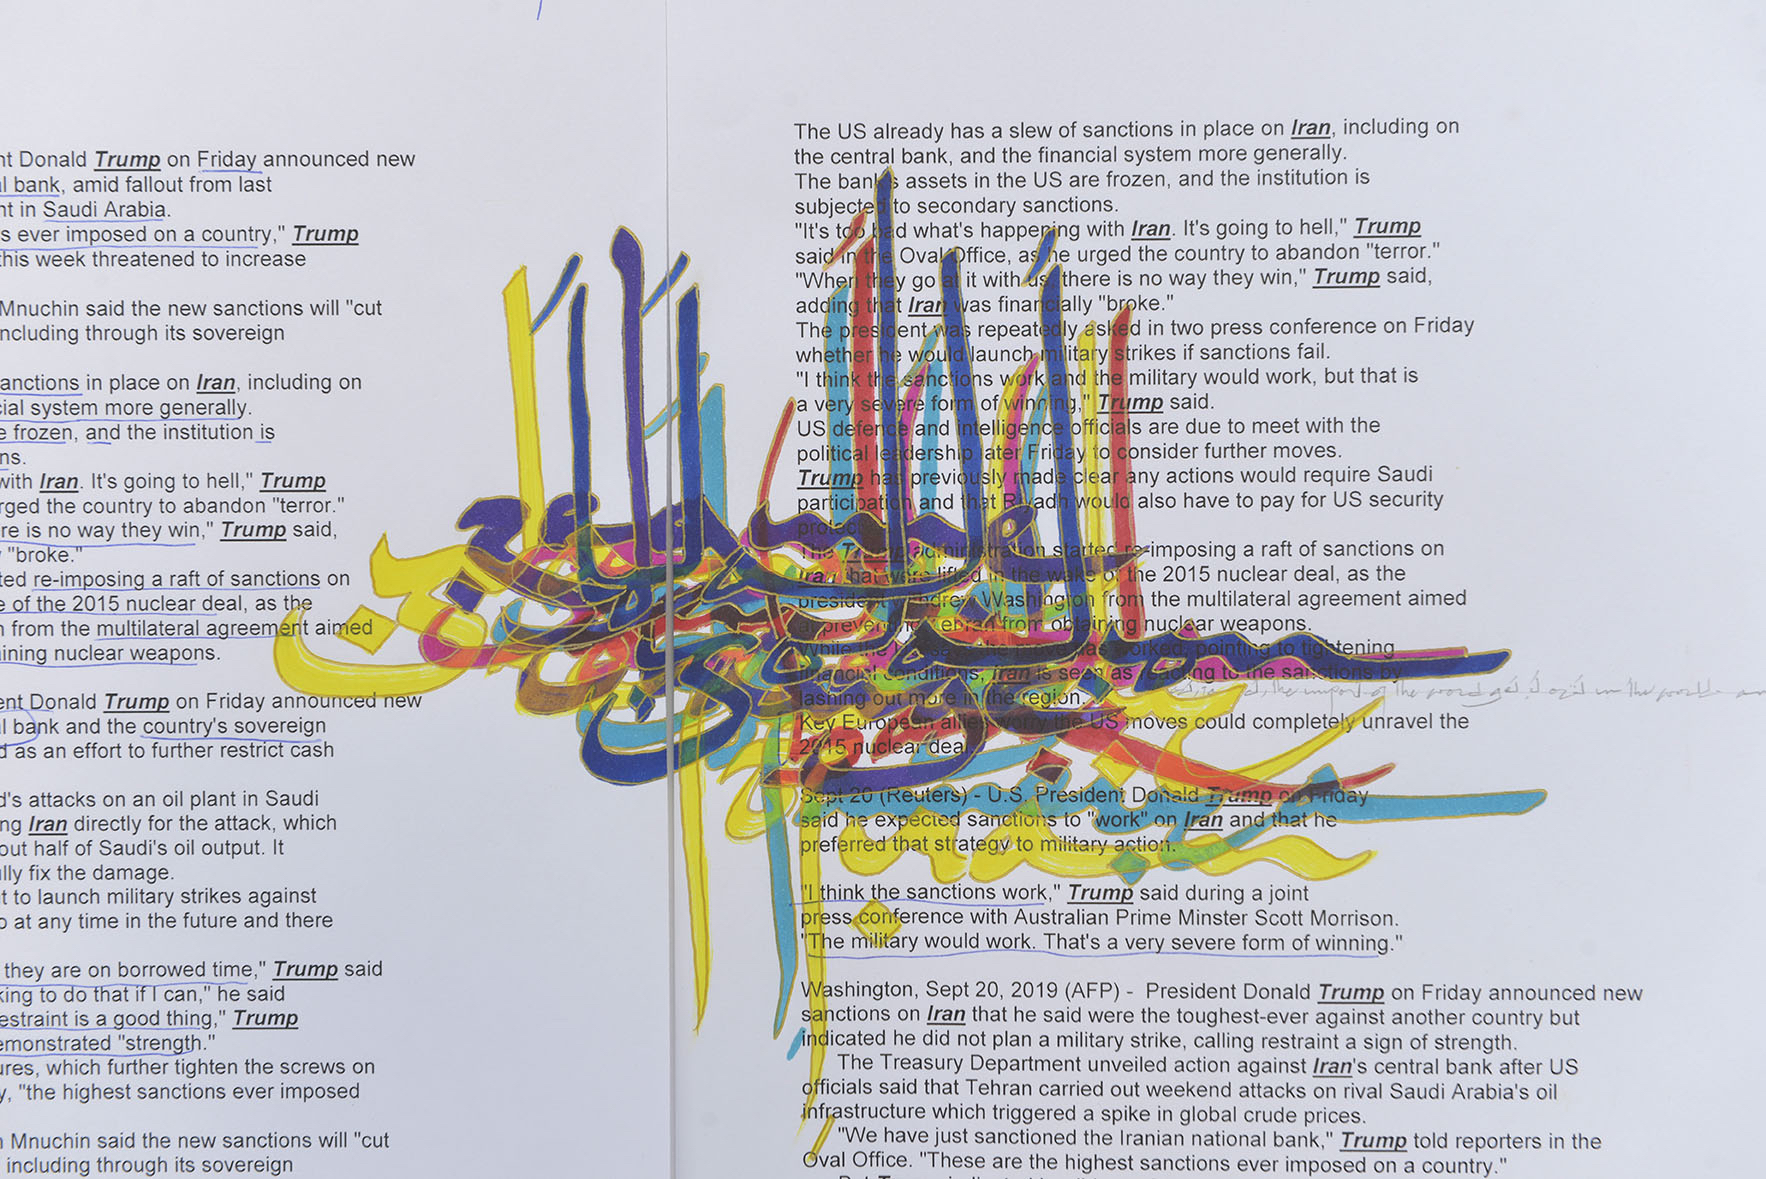 nt Donald Trump on Friday announced new
l bank, amid fallout from last
nt in Saudi Arabia.
s ever imposed on a country," Trump
this week threatened to increase
Mnuchin said the new sanctions will "cut
ncluding through its sovereign
sanctions in place on Iran, including on
cial system more generally.
e frozen, and the institution is
ns.
with Iran. It's going to hell," Trump
rged the country to abandon "terror."
re is no way they win," Trump said,
"broke."
ted re-imposing a raft of sanctions on
e of the 2015 nuclear deal, as the
n from the multilateral agreement aimed
aining nuclear weapons.
ent Donald Trump on Friday announced new
l bank and the country's sovereign
d as an effort to further restrict cash
d's attacks on an oil plant in Saudi
ng Iran directly for the attack, which
out half of Saudi's oil output. It
lly fix the damage.
t to launch military strikes against
o at any time in the future and there
they are on borrowed time," Trump said
king to do that if I can," he said
estraint is a good thing," Trump
emonstrated "strength."
ures, which further tighten the screws on
y, "the highest sanctions ever imposed
n Mnuchin said the new sanctions will "cut
including through its sovereign
The US already has a slew of sanctions in place on Iran, including on
the central bank, and the financial system more generally.
The bank's assets in the US are frozen, and the institution is
subjected to secondary sanctions.
"It's too bad what's happening with Iran. It's going to hell," Trump
said in the Oval Office, as he urged the country to abandon "terror."
"When they go at it with us, there is no way they win," Trump said,
adding that Iran was financially "broke."
The president was repeatedly asked in two press conference on Friday
whether he would launch military strikes if sanctions fail.
"I think the sanctions work and the military would work, but that is
a very severe form of winning," Trump said.
US defence and intelligence officials are due to meet with the
political leadership later Friday to consider further moves.
Trump has previously made clear any actions would require Saudi
participation and that Riyadh would also have to pay for US security
The Trump administration started re-imposing a raft of sanctions on
Iran that were lifted in the wake of the 2015 nuclear deal, as the
president Washington from the multilateral agreement aimed
from obtaining nuclear weapons.
While the worked, pointing to tightening
financial conditions, Iran is seen as reacting to the sanctions by
lashing out more in the region.
Key European allies worry the US moves could completely unravel the
2015 nuclear deal.
Sept 20 (Reuters) - U.S. President Donald Trump on Friday
said he expected sanctions to "work" on Iran and that he
preferred that strategy to military action.
"I think the sanctions work," Trump said during a joint
press conference with Australian Prime Minster Scott Morrison.
"The military would work. That's a very severe form of winning."
Washington, Sept 20, 2019 (AFP) - President Donald Trump on Friday announced new
sanctions on Iran that he said were the toughest-ever against another country but
indicated he did not plan a military strike, calling restraint a sign of strength.
The Treasury Department unveiled action against Iran's central bank after US
officials said that Tehran carried out weekend attacks on rival Saudi Arabia's oil
infrastructure which triggered a spike in global crude prices.
"We have just sanctioned the Iranian national bank," Trump told reporters in the
Oval Office. "These are the highest sanctions ever imposed on a country."